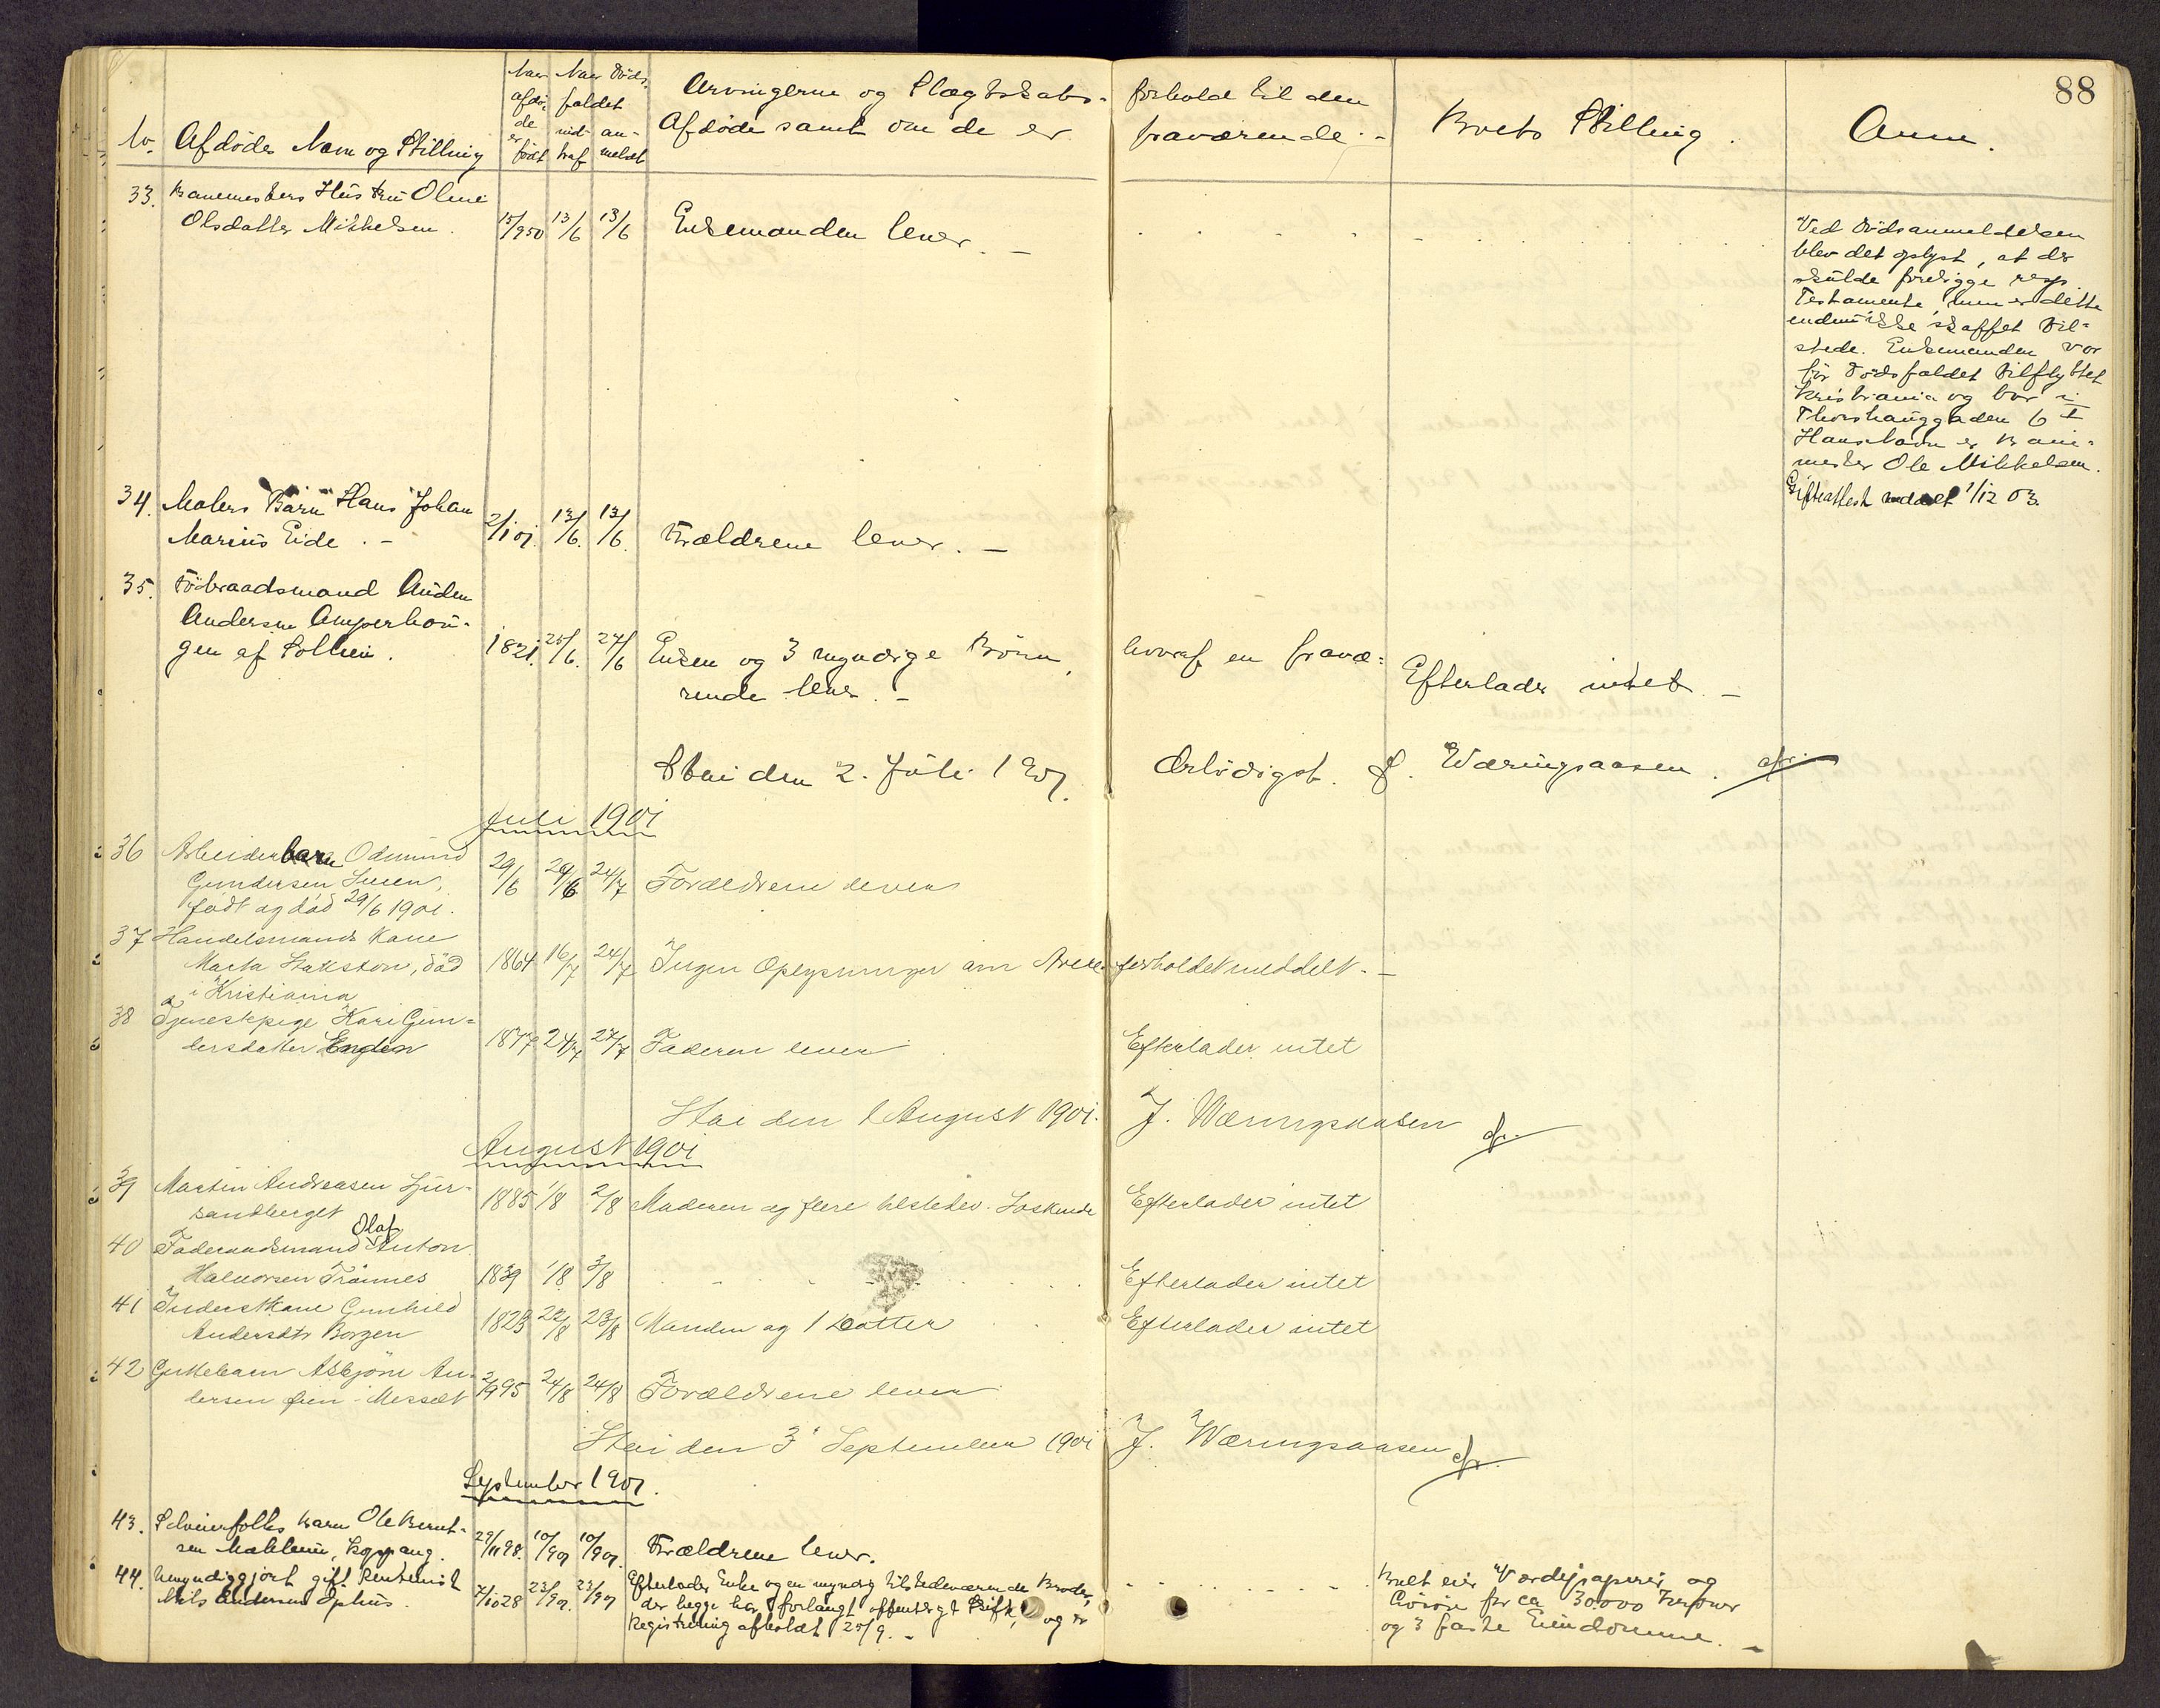 88
No. Afdødes Navn og Stilling
Naar afdøde er født
Naar Dødsfaldet indtraf anmeldt
Arvingerne og Slægtskabsforhold til den
Afdøde samt om de er fraværende. -
Boets Stilling.
Anm.
33. Banemesters Hustru Oline
Olsdatter Mikkelsen. 15/9 50 13/6 13/6 Enkemanden lever. -
Ved Dødsanmeldelsen
blev det oplyst, at der
skulde foreligge resp.
Testamente, men er dette
endnu ikke skaffet til-
stede. Enkemanden var
før Dødsfaldet tilflyttet
Kristiania og bor i
Thorshauggaden 6 I
Hans Navn er Bane-
mester Ole Mikkelsen.
Skifteattest uddelt 1/12 03.
34. Malers Barn Hans Johan
Marius Eide. - 2/1 01. 13/6. 13/6. Forældrene lever. -
35. Føderaadsmand Auden
Andersen Amperhou-
gen af Sollien. 1821. 25/6. 27/6 Enken og 3 myndige Börn, hvoraf en fravæ-
rende lever. - Efterlader intet. -
Stai den 2. Juli 1901. Ærbödigst. J. Wæringsaasen.
Juli 1901
36 Arbeiderbarn Odmund
Gundersen Lucen, 29/6 29/6 24/7 Forældrene lever
født og død 29/6 1901.
37 Handelsmands Kone
Marta Stakston, død 1864 16/7 24/7 Ingen Oplysninger om Arveforholdet meddelt. -
i Kristiania
38 Tjenestepige Kari Gun-
dersdatter Engen 1877 24/7 27/7 Faderen lever Efterlader intet
Stai den 1 August 1901. J. Wæringsaasen
August 1901
39 Martin Andreasen Sjur-
sandberget 1885 1/8 2/8 Moderen og flere tilstedev. Søskende Efterlader intet
40 Føderaadsmand Olaf Anton
Halvorsen Trønnes 1839 1/8 3/8 Efterlader intet
41 Inderstkone Gunhild
Andersdtr Borgen 1823 22/8 23/8 Manden og 1 Datter Efterlader intet
42 Guttebarn Asbjørn An-
dersen Messelt 2/9 95 24/8 24/8 Forældrene lever
Stai den 3' September 1901 J. Wæringsaasen
September 1901.
43. Selveierfolks Barn Ole Bernt-
sen Møkleim, Koppang. 29/11 98. 10/9 01 10/9 01. Forældrene lever.
44. Umyndiggjort gift Rentenist
Nils Andersen Ophus. 7/10 28 23/9 01. 23/9 01
Efterlader Enke og en myndig tilstedeværende Broder,
der begge har forlangt offentligt Skifte, og er
Registrering afholdt 25/9. -
Boet eier Værdipapirer og
Løsøre for ca 30.000 Kroner
og 3 faste Eiendomme. -